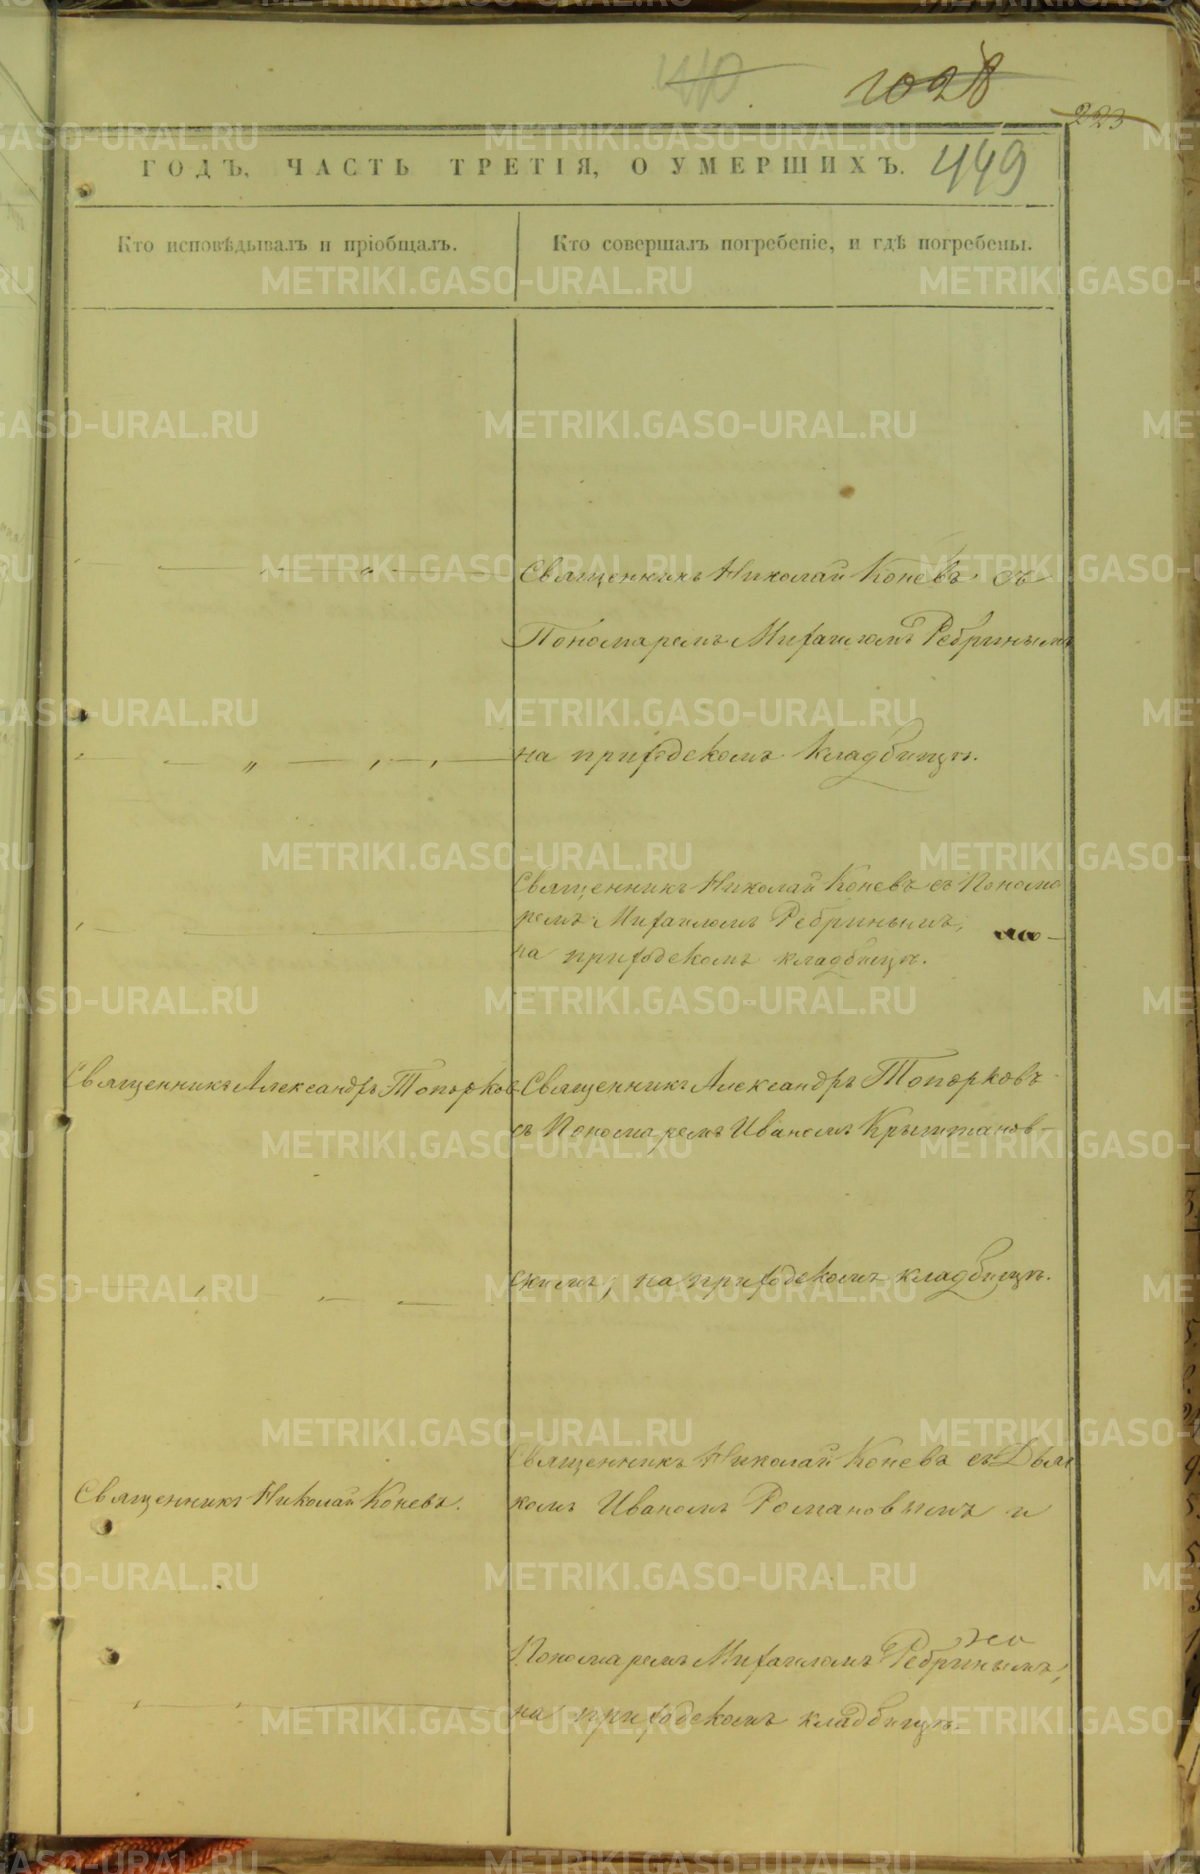 1028
223
449
ГОДЪ, ЧАСТЬ ТРЕТІЯ, О УМЕРШИХЪ.
Кто исповѣдывалъ и пріобщалъ.
Кто совершалъ погребеніе, и гдѣ погребены.
Священникъ Николай Коневъ съ
Пономаремъ Михаиломъ Ребринымъ
на приходскомъ кладбищѣ.
Священникъ Николай Коневъ съ Понома
ремъ Михаиломъ Ребринымъ,
на приходскомъ кладбищѣ.
Священникъ Александръ Топорков
Священникъ Александръ Топорковъ
съ Пономаремъ Иваномъ Крыжтанов-
скимъ, на приходскомъ кладбищѣ.
Священникъ Николай Коневъ.
Священникъ Николай Коневъ съ Дьяч
комъ Иваномъ Романовымъ и
Пономаремъ Михаиломъ Ребринымъ,
на приходскомъ кладбищѣ.
METRIKI.GASO-URAL.RU